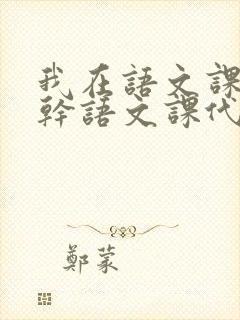 我在語文課
幹語文課代
鄭蒙